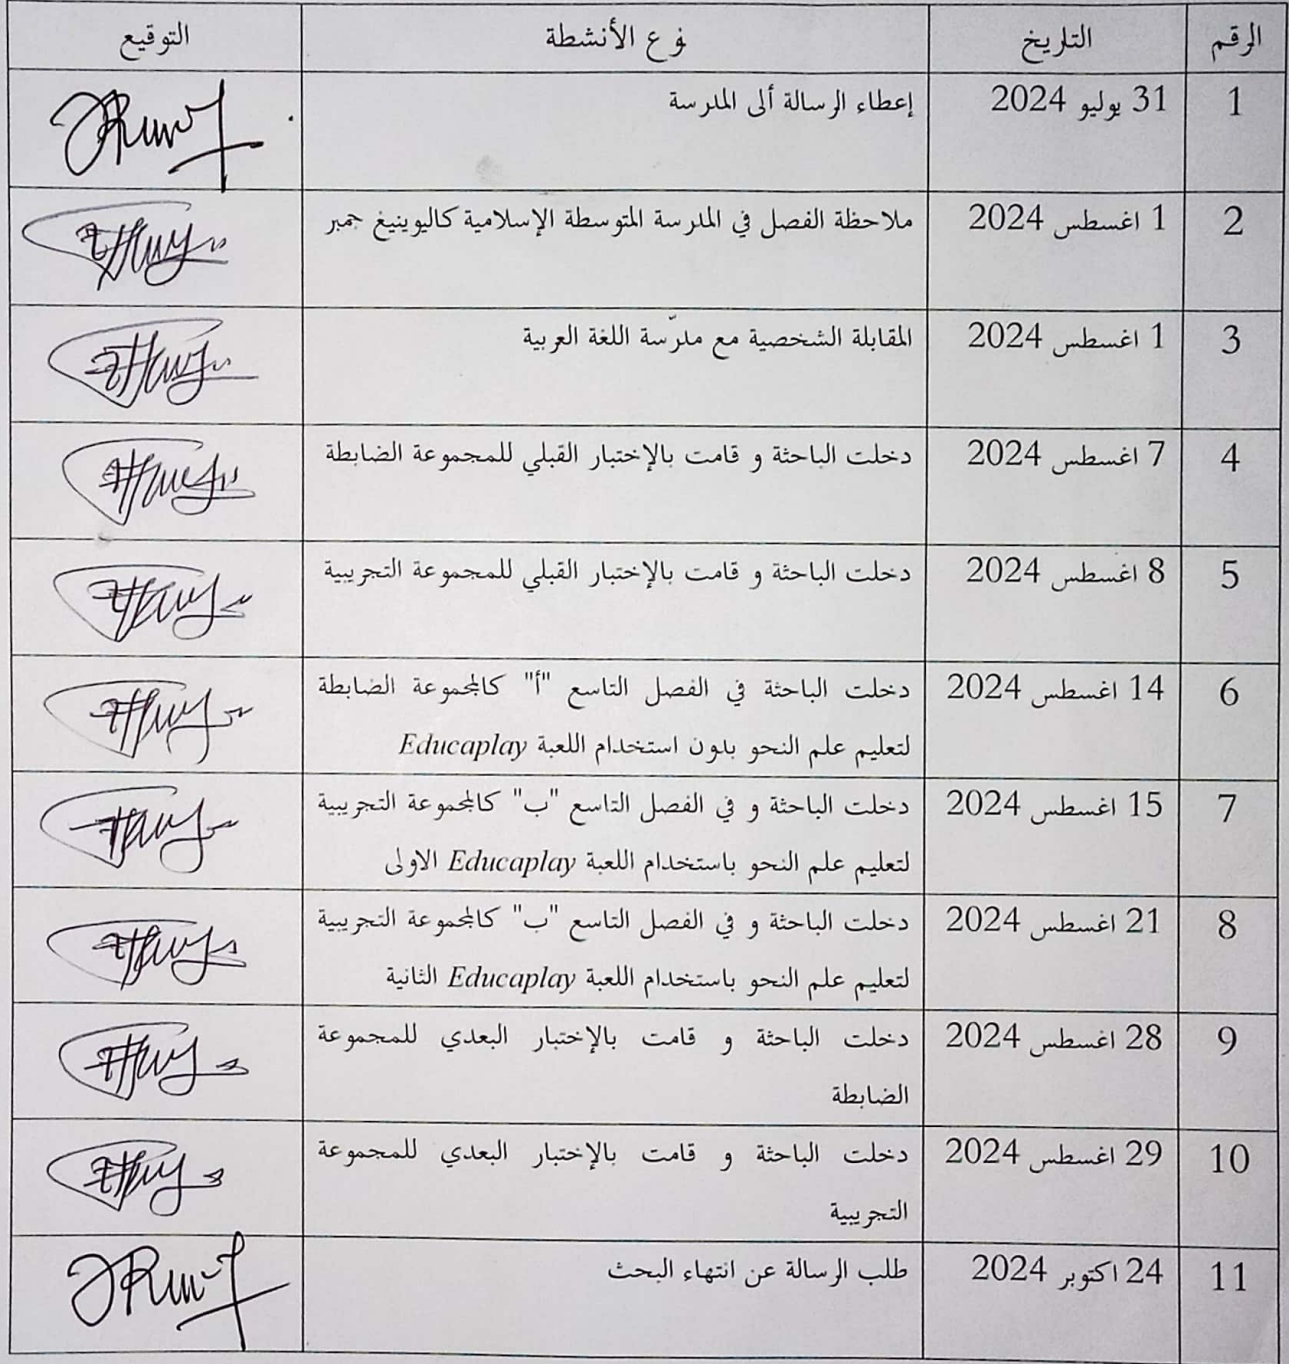 الرقم التاريخ نوع الأنشطة التوقيع
1 31 يوليو 2024 إعطاء الرسالة ألى المدرسة
2 1 اغسطس 2024 ملاحظة الفصل في المدرسة المتوسطة الإسلامية كاليوينيغ جمبر
3 1 اغسطس 2024 المقابلة الشخصية مع مدرّسة اللغة العربية
4 7 اغسطس 2024 دخلت الباحثة و قامت بالإختبار القبلي للمجموعة الضابطة
5 8 اغسطس 2024 دخلت الباحثة و قامت بالإختبار القبلي للمجموعة التجريبية
6 14 اغسطس 2024 دخلت الباحثة في الفصل التاسع "أ" كالمجموعة الضابطة
لتعليم علم النحو بدون استخدام اللعبة Educaplay
7 15 اغسطس 2024 دخلت الباحثة و في الفصل التاسع "ب" كالمجموعة التجريبية
لتعليم علم النحو باستخدام اللعبة Educaplay الاولى
8 21 اغسطس 2024 دخلت الباحثة و في الفصل التاسع "ب" كالمجموعة التجريبية
لتعليم علم النحو باستخدام اللعبة Educaplay الثانية
9 28 اغسطس 2024 دخلت الباحثة و قامت بالإختبار البعدي للمجموعة
الضابطة
10 29 اغسطس 2024 دخلت الباحثة و قامت بالإختبار البعدي للمجموعة
التجريبية
11 24 اكتوبر 2024 طلب الرسالة عن انتهاء البحث